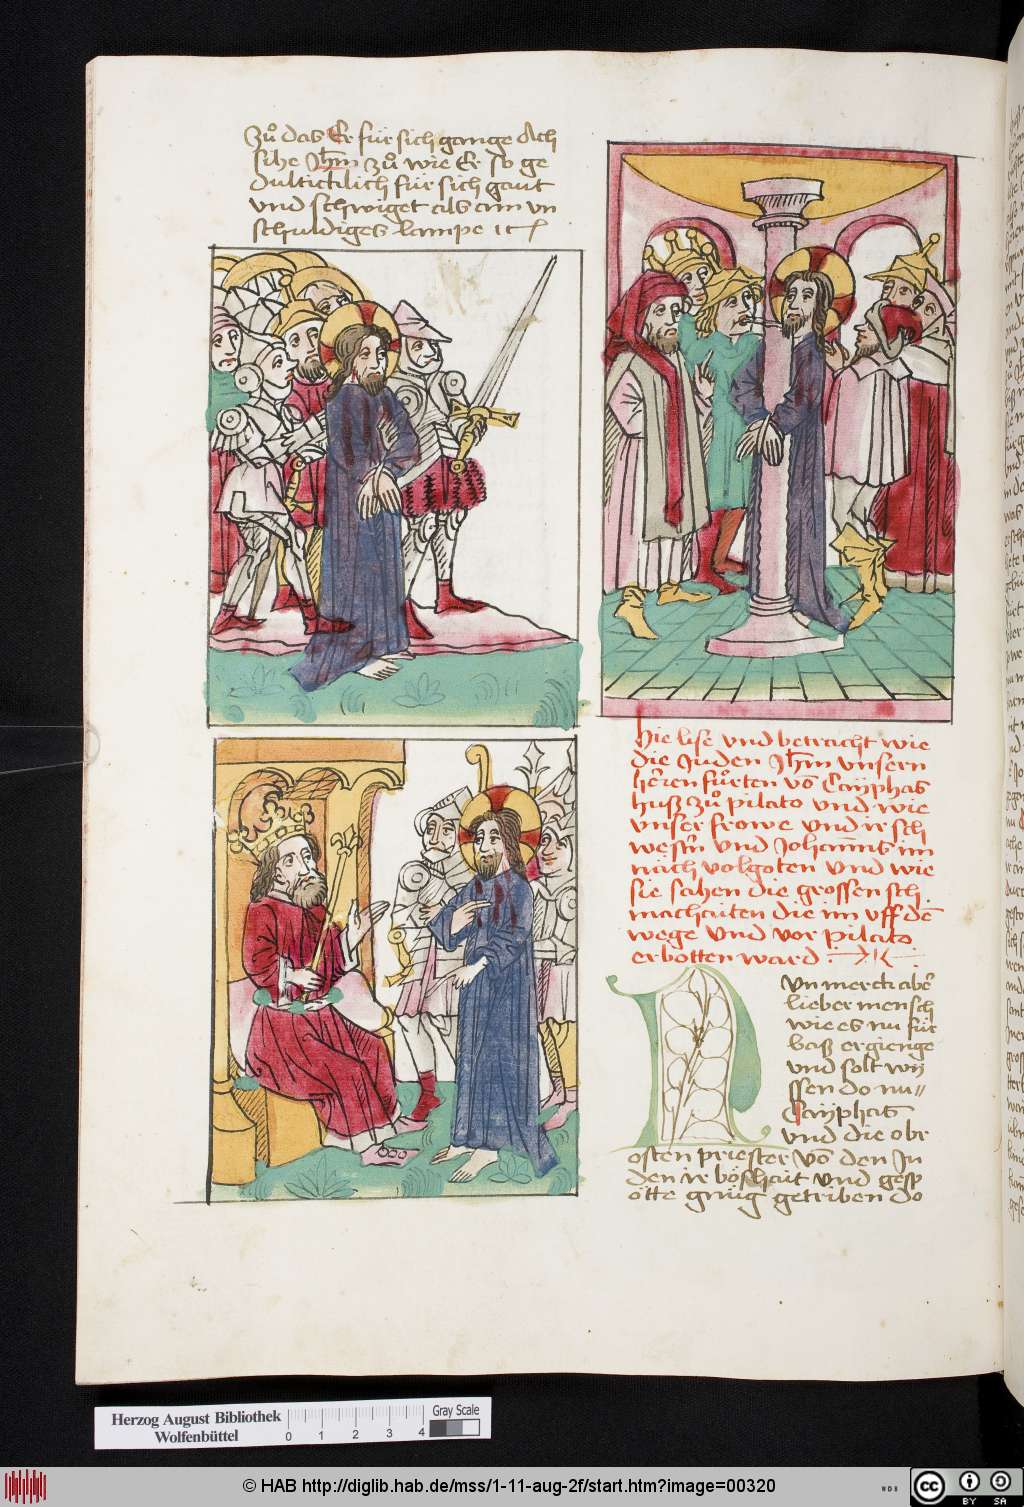 Zů das Er für sich gange Ach
sihe Jhm̄ zů wie Er so ge
dulticklich für sich gaut
und schwiget als ain vn
schuldiges lampe
hie lise vnd betracht wie
die Juden Jhm̄ vnsern
herren fůrten vō Cayphas
huß zů pilato vnd wie
vnser frowe vnd ir sch
westn̄ vnd Johan̄es im
nach volgoten vnd wie
sie sahen die grossen sch
machaiten die im vff dē
wege vnd vor pilato
erbotten ward
NVn merck aber
lieber mensch
wie es nu für
baß ergienge
vnd solt wy
ssen do nu
Cayphas
vnd die obr
osten priester vō den Ju
den ir boßhait vnd gesp
ötte gnůg getriben do
Herzog August Bibliothek
Wolfenbüttel
Gray Scale
0 1 2 3 4
© HAB http://diglib.hab.de/mss/1-11-aug-2f/start.htm?image=00320
cc BY SA